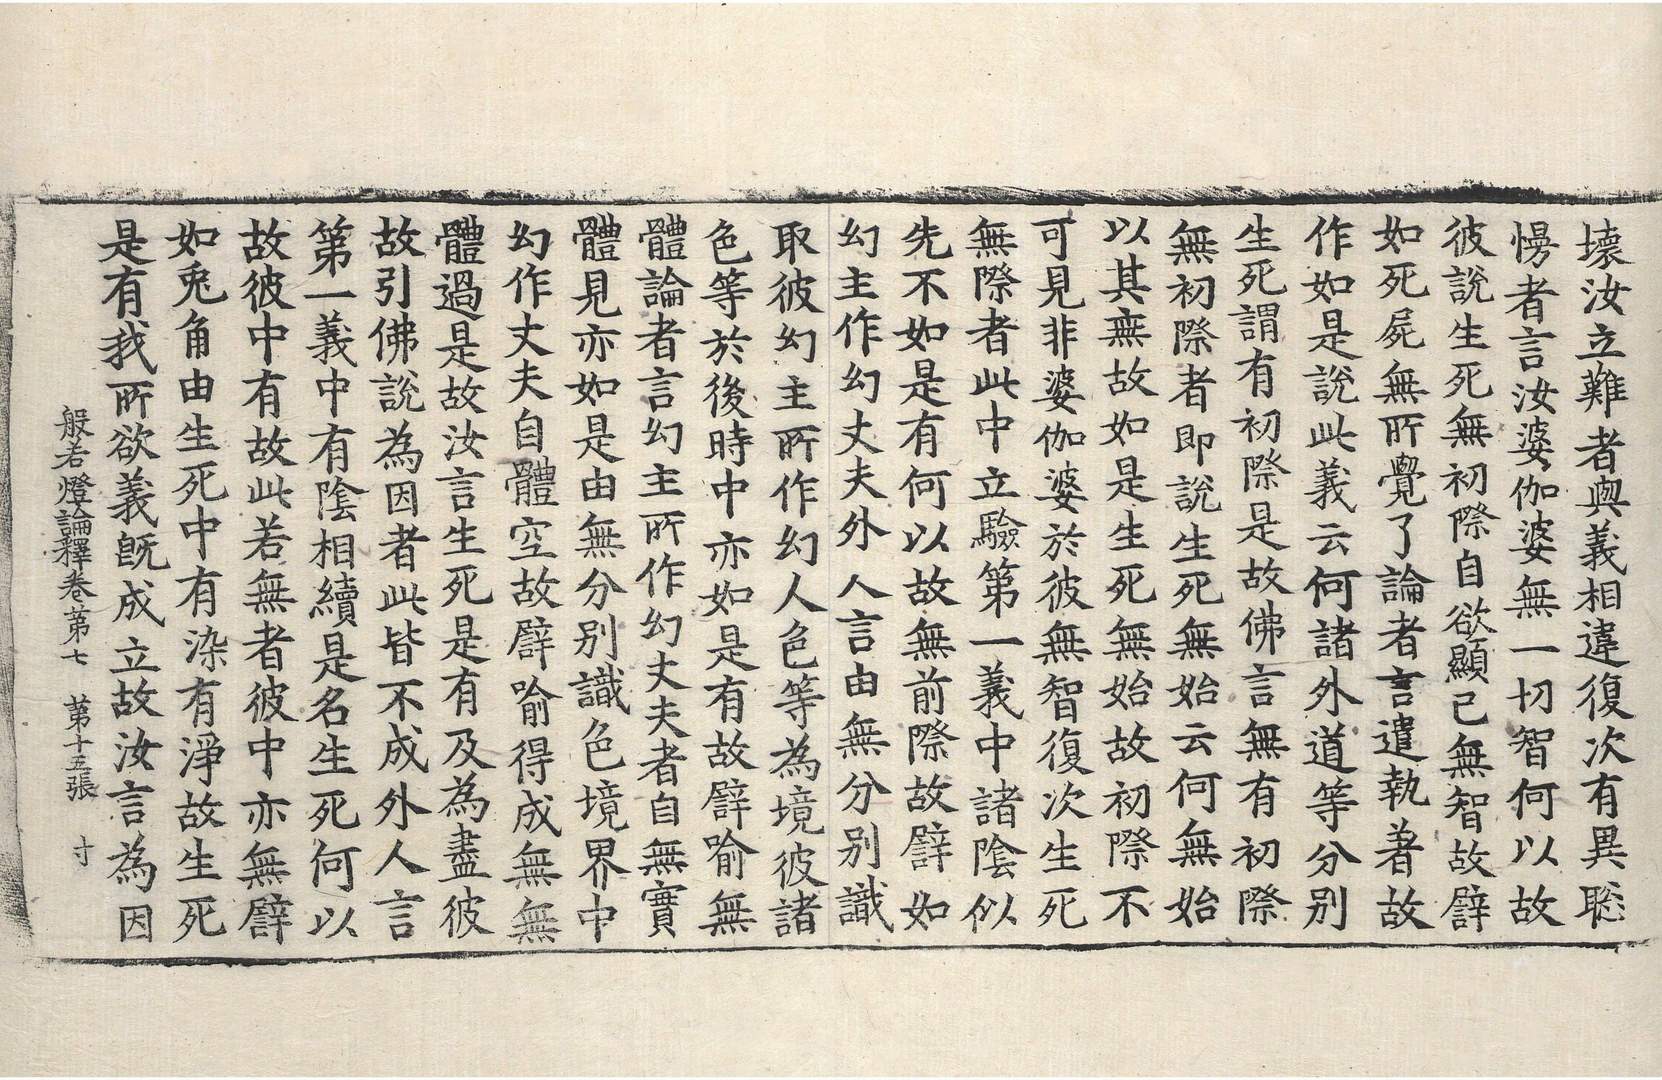 壞汝立難者與義相違復次有異聡
慢者言汝婆伽婆無一切智何以故
彼說生死無初際自欲顯已無智故譬
如死屍無所覺了論者言遣執著故
作如是說此義云何諸外道等分別
生死謂有初際是故佛言無有初際
無初際者即說生死無始云何無始
以其無故如是生死無始故初際不
可見非婆伽婆於彼無智復次生死
無際者此中立驗第一義中諸陰似
先不如是有何以故無前際故譬如
幻主作幻丈夫外人言由無分別識
取彼幻主所作幻人色等為境彼諸
色等於後時中亦如是有故譬喻無
體論者言幻主所作幻丈夫者自無實
體見亦如是由無分別識色境界中
幻作丈夫自體空故譬喻得成無無
體過是故汝言生死是有及為盡彼
故引佛說為因者此皆不成外人言
第一義中有陰相續是名生死何以
故彼中有故此若無者彼中亦無譬
如兎角由生死中有染有淨故生死
是有我所欲義旣成立故汝言為因
般若燈論釋卷第七　第十五張　寸